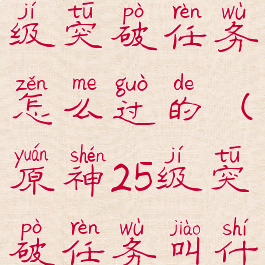 jí tū pò rèn wù
级突破任务
zěn me guò de
怎么过的（
yuán shén jí tū
原神25级突
pò rèn wù jiào shí
破任务叫什